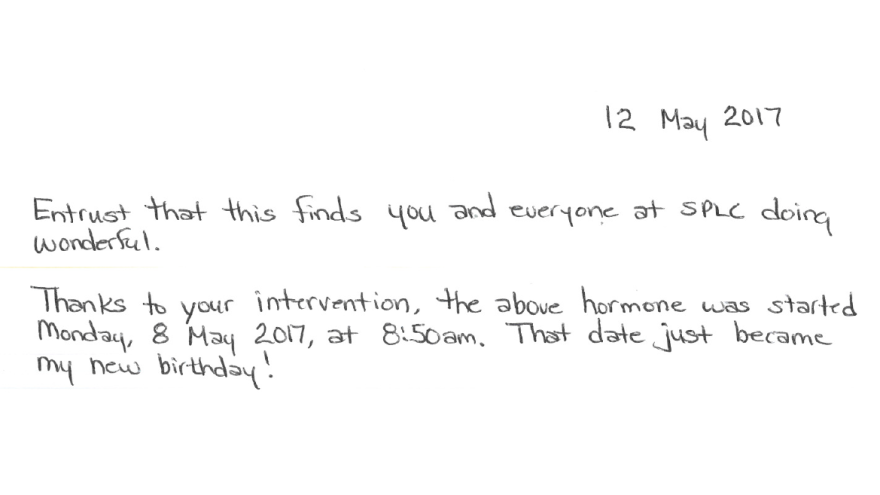 12 May 2017
Entrust that this finds you and everyone at SPLC doing
wonderful.
Thanks to your intervention, the above hormone was started
Monday, 8 May 2017, at 8:50am. That date just became
my new birthday!